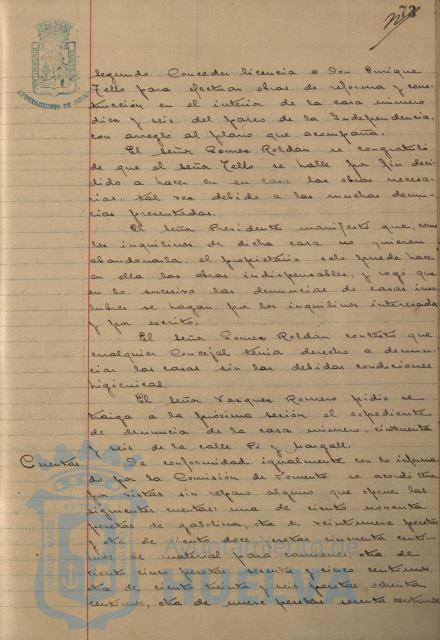 73
AYUNTAMIENTO DE HUELVA
segundo. Conceder licencia a Don Enrique
Tello para efectuar obras de reforma y cons-
trucción en el interior de la casa número
diez y seis del paseo de la Independencia,
con arreglo al plano que acompaña.
El Señor Gomez Roldán se congratuló
de que el señor Tello se halle por fin deci-
dido a hacer en su casa las obras necesa-
rias, tal vez debido a las muchas denun-
cias presentadas.
El Señor Presidente manifestó que, como
los inquilinos de dicha casa no quieren
abandonarla, el propietario solo puede hacer
en ella las obras indispensables, y rogó que
en lo sucesivo las denuncias de casas insa-
lubres se hagan por los inquilinos interesados
y por escrito.
El Señor Gomez Roldán contestó que
cualquier Concejal tenia derecho a denun-
ciar las casas sin las debidas condiciones
higienicas.
El Señor Vazquez Romero pidió se
traiga a la próxima sesión el expediente
de denuncia de la casa número cincuenta
y seis de la calle Pi y Margall.
Cuentas. De conformidad igualmente con lo informa-
do por la Comisión de Fomento se acordó
por vistas sin reparo alguno, que
siguientes cuentas: una de ciento noventa
pesetas de gasolina, otra de veintinueve pesetas
y otra de ciento doce pesetas cincuenta cénti-
mos de material para camiones, otra de
ciento cinco pesetas sesenta y cinco centimos,
otra de ciento treinta y seis pesetas ochenta
centimos, otra de nueve pesetas sesenta centimos
Ayuntamiento de
HUELVA